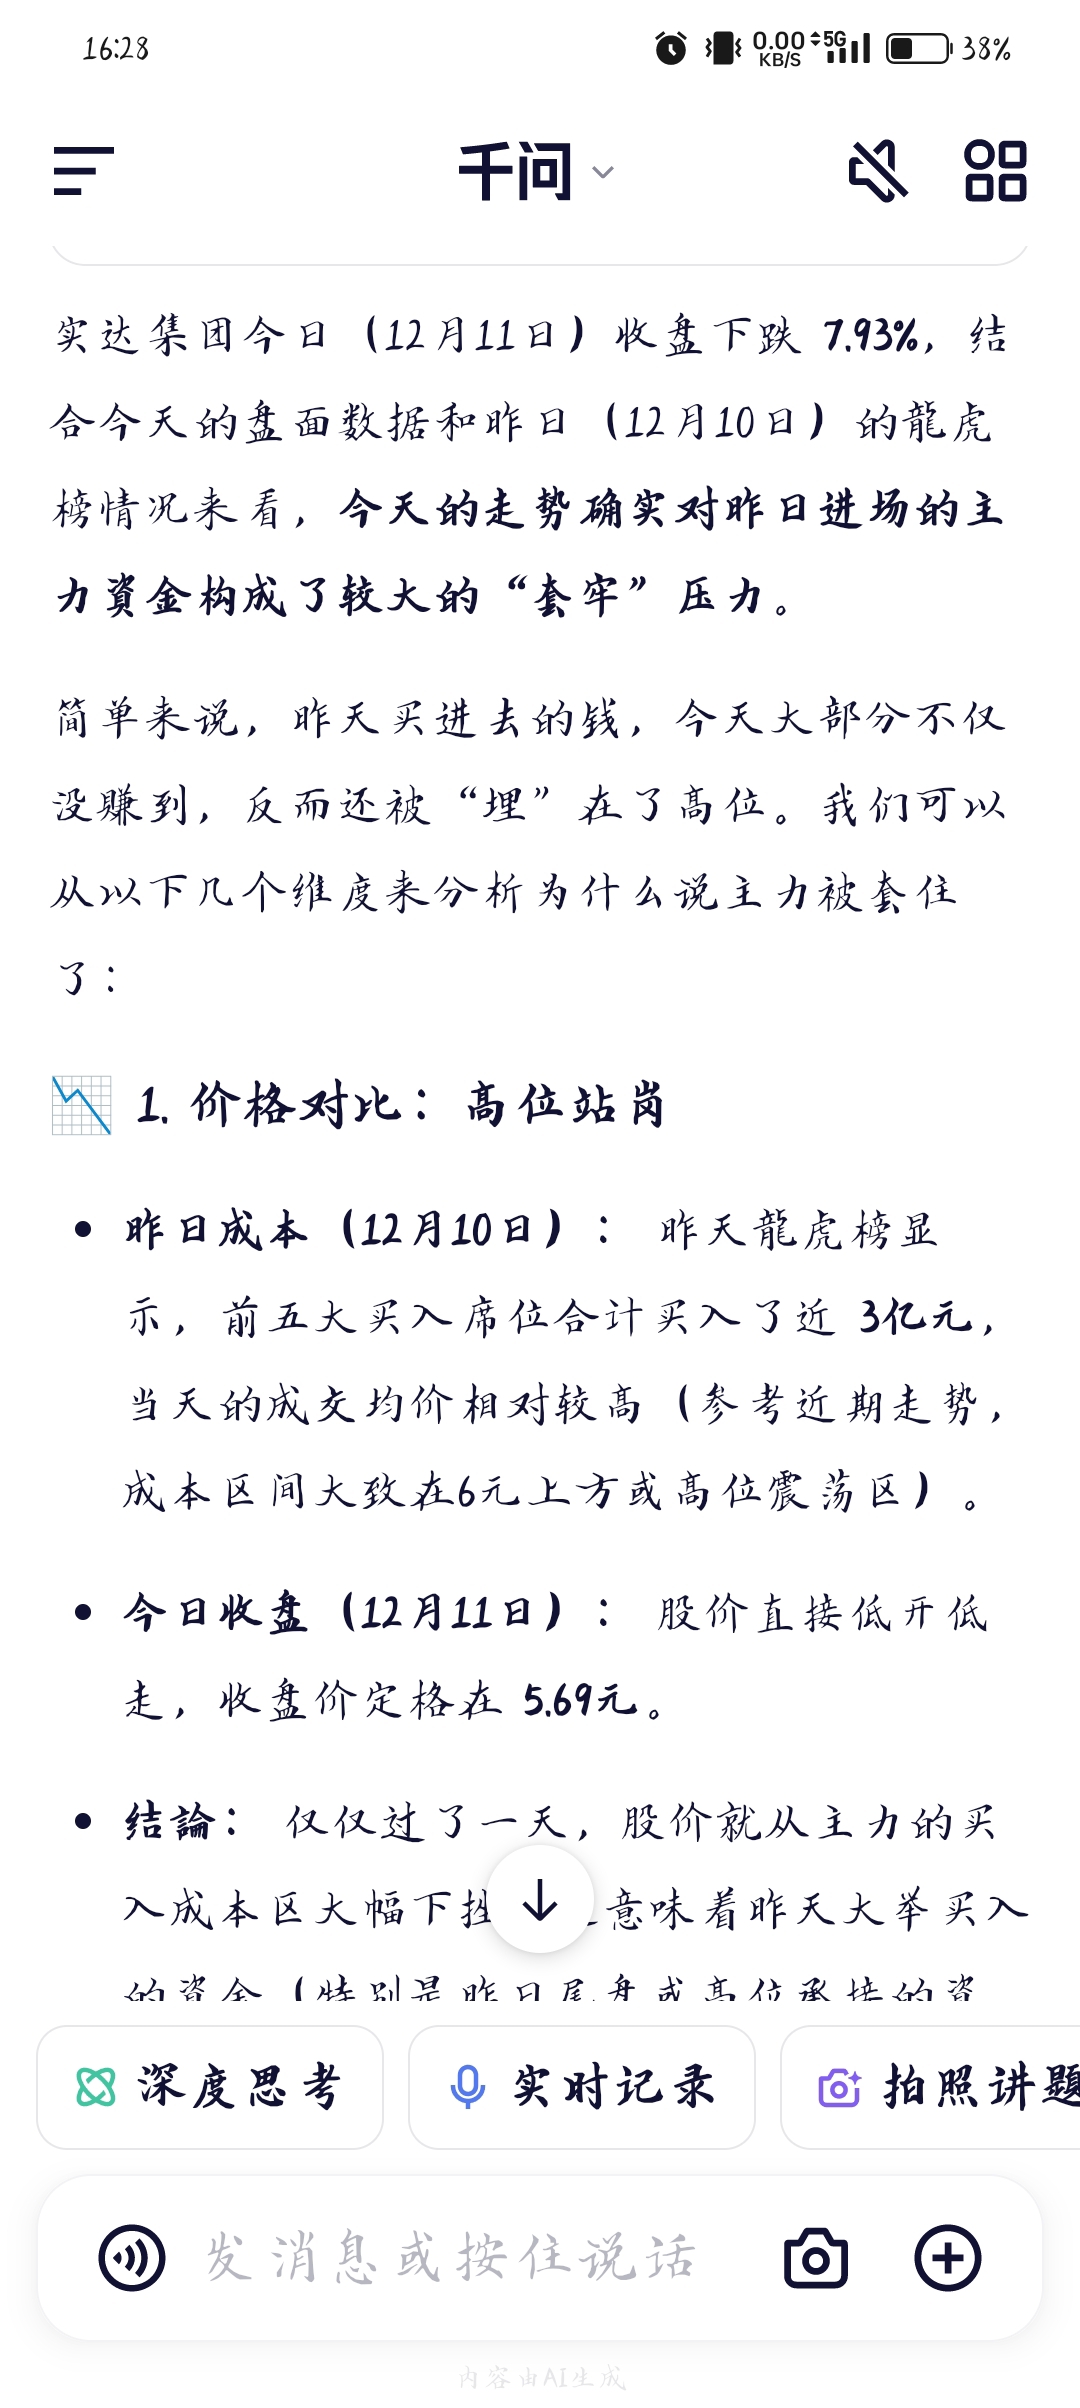 16:28
0.00 KB/S 5G 38%
千问
实达集团今日（12月11日）收盘下跌 7.93%，结
合今天的盘面数据和昨日（12月10日）的龍虎
榜情况来看，今天的走势确实对昨日进场的主
力資金构成了较大的“套牢”压力。
简单来说，昨天买进去的钱，今天大部分不仅
没賺到，反而还被“埋”在了高位。我们可以
从以下几个维度来分析为什么说主力被套住
了：
1. 价格对比：高位站岗
昨日成本（12月10日）： 昨天龍虎榜显
示，前五大买入席位合计买入了近 3亿元，
当天的成交均价相对较高（参考近期走势，
成本区间大致在6元上方或高位震荡区）。
今日收盘（12月11日）： 股价直接低开低
走，收盘价定格在 5.69元。
结論： 仅仅过了一天，股价就从主力的买
入成本区大幅下挫 意味着昨天大举买入
的資金（特别是昨日尾盘或高位承接的資
深度思考 实时记录 拍照讲題
发消息或按住说话
内容由AI生成